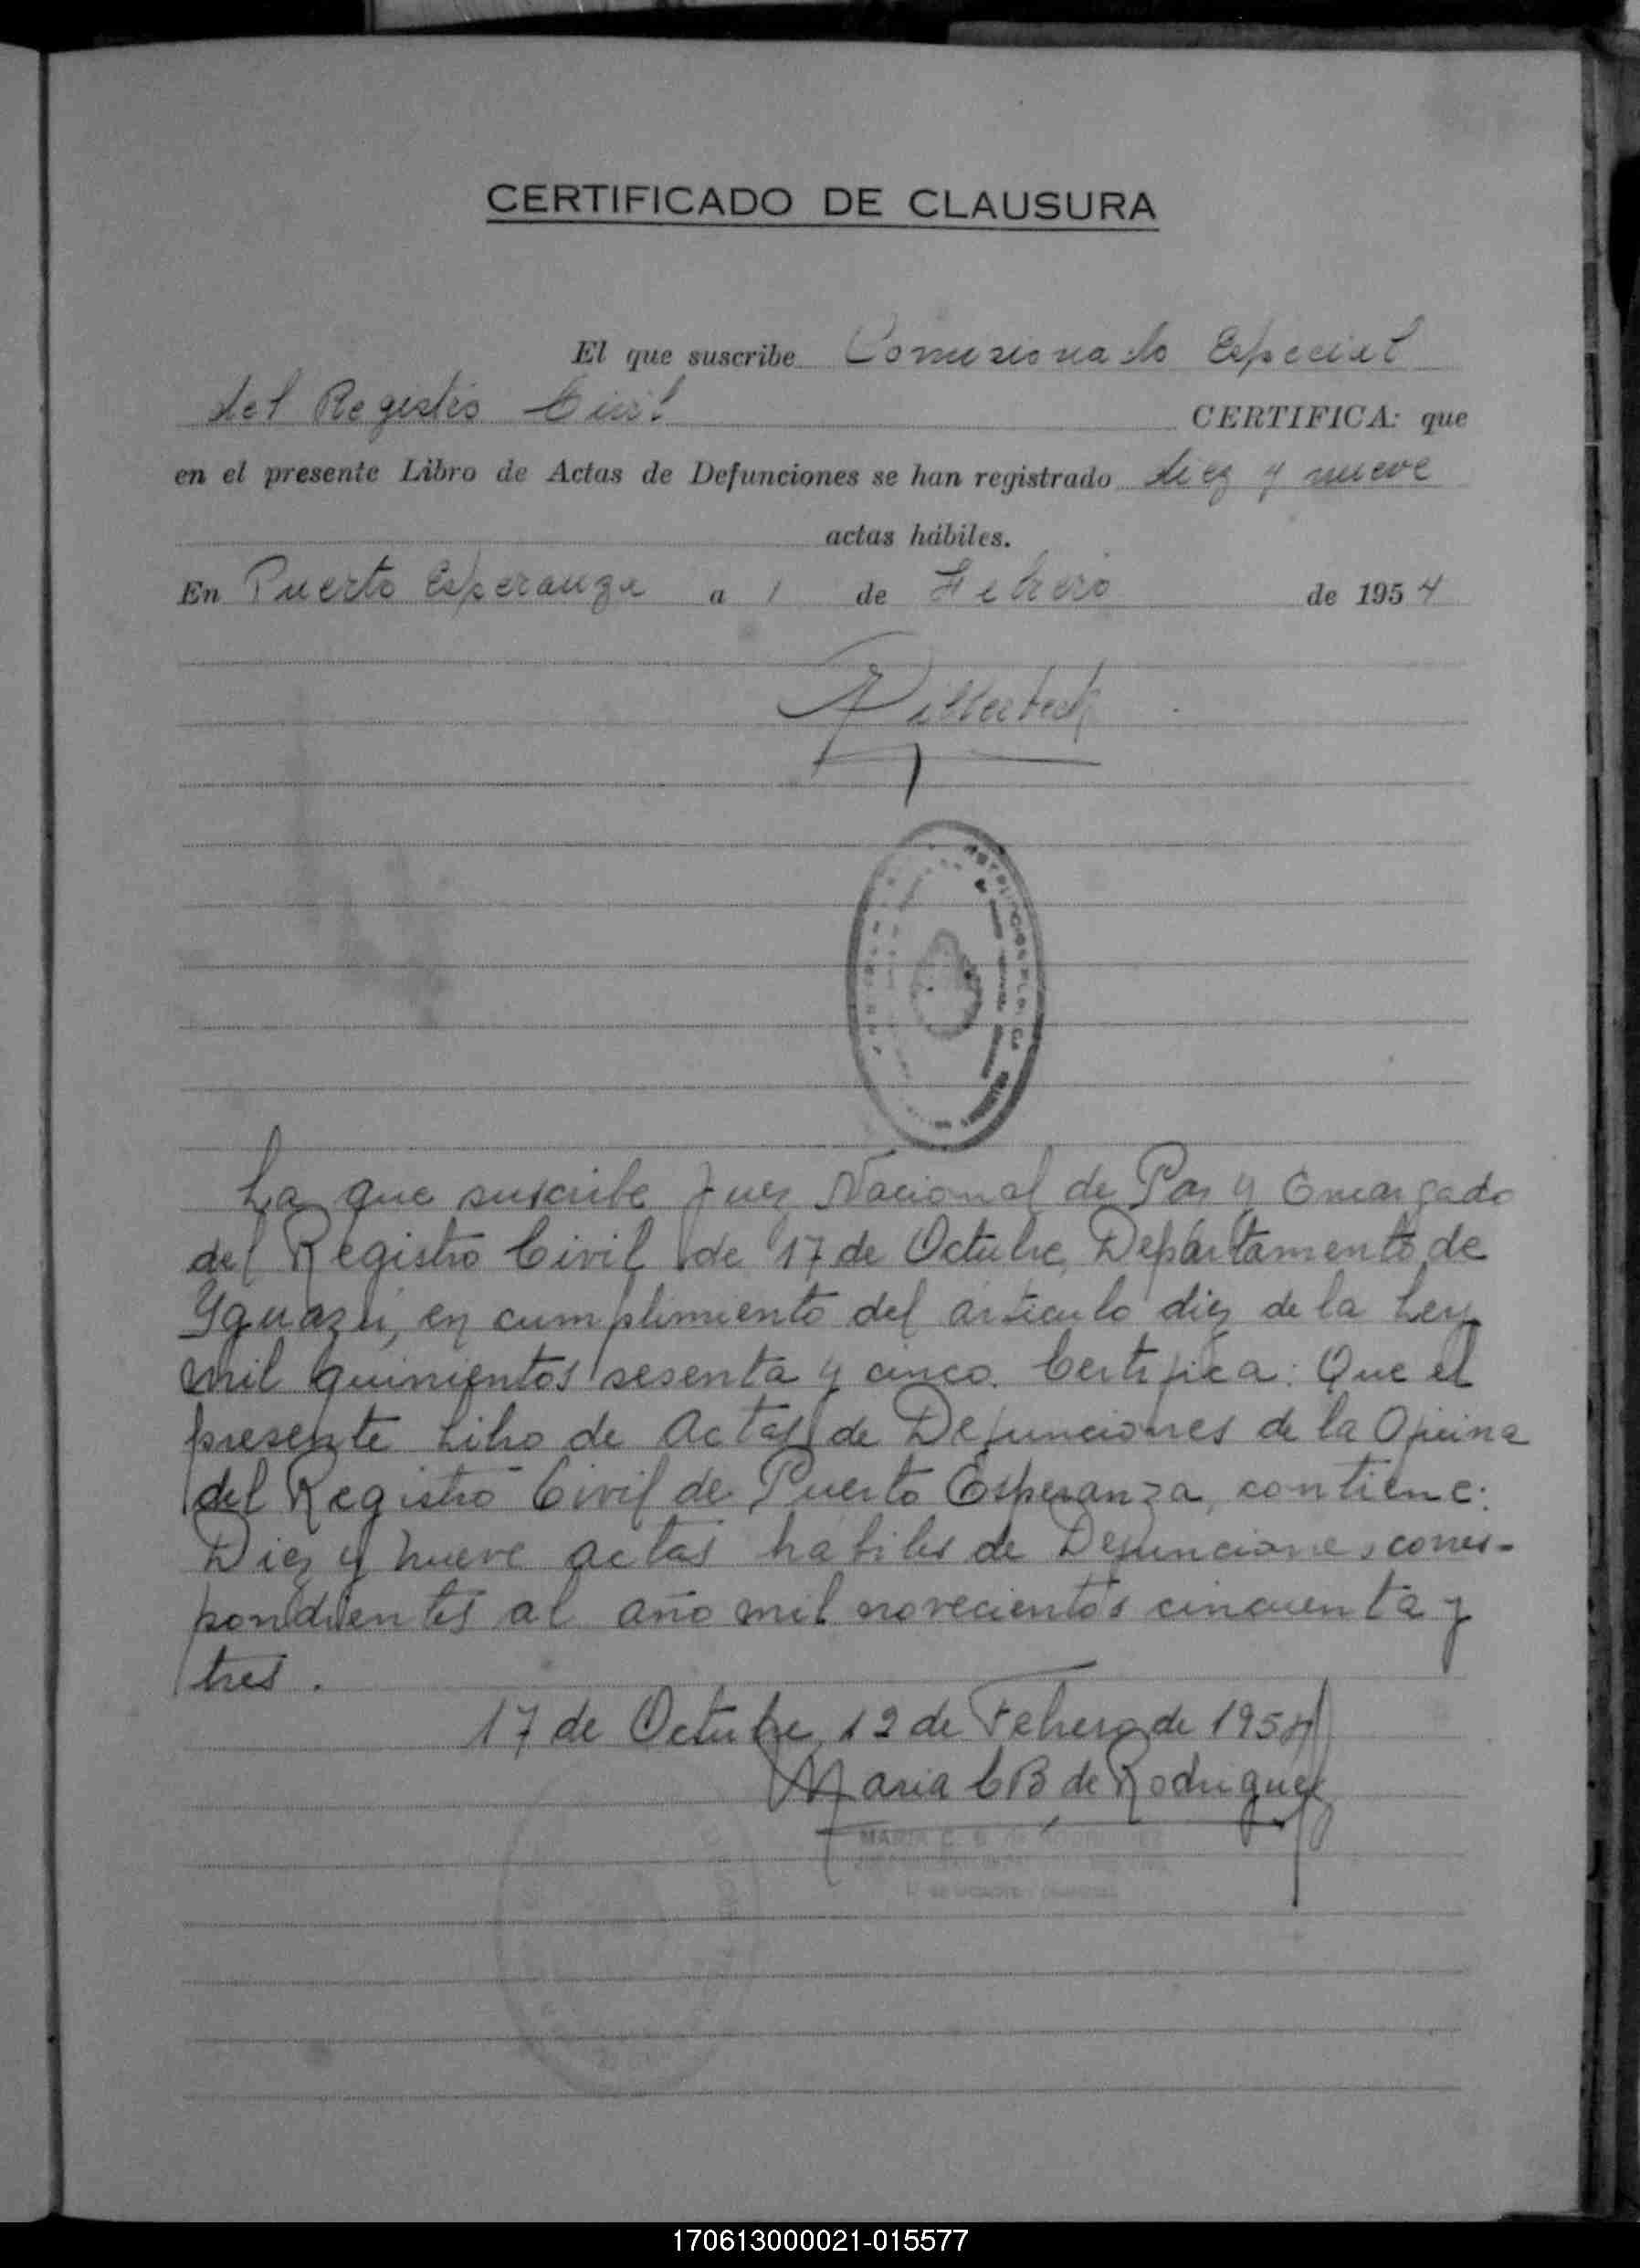 CERTIFICADO DE CLAUSURA
El que suscribe Comisionado Especial
del Registro Civil CERTIFICA: que
en el presente Libro de Actas de Defunciones se han registrado diez y nueve
actas hábiles.
En Puerto Esperanza a 1 de Febrero de 1954
La que suscribe Juez Nacional de Paz y Encargado
del Registro Civil de 17 de Octubre, Departamento de
Yguazú, en cumplimiento del artículo diez de la Ley
mil quinientos sesenta y cinco. Certifica: Que el
presente Libro de Actas de Defunciones de la Oficina
del Registro Civil de Puerto Esperanza, contiene:
Diez y nueve actas habiles de Defunciones corres-
pondientes al año mil novecientos cincuenta y
tres.
17 de Octubre, 12 de Febrero de 1954
Maria C B de Rodriguez
MARIA C. B. de RODRIGUEZ
170613000021-015577